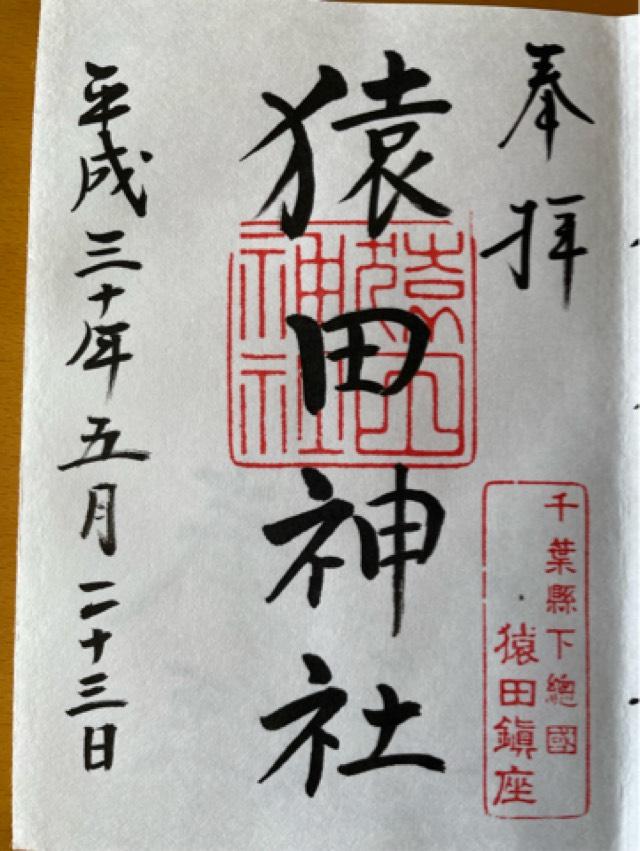 奉拝
千葉縣下總國
猿田鎮座
猿田神社
猿田神社
平成三十年五月二十三日